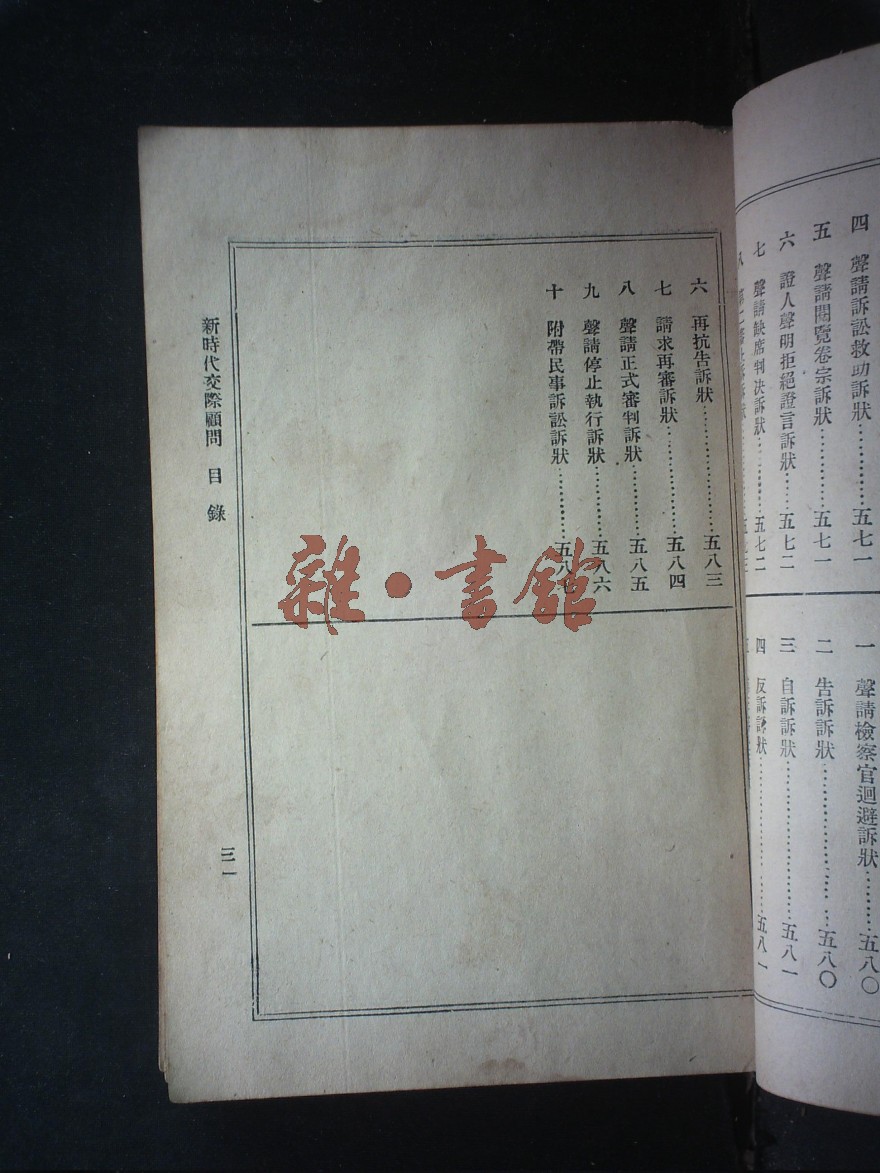 四 聲請訴訟救助訴狀…………五七一
五 聲請閱覽卷宗訴狀…………五七一
六 證人聲明拒絕證言訴狀……五七二
七 聲請缺席判決訴狀…………五七二
一 聲請檢察官迴避訴狀………五八〇
二 告訴訴狀……………………五八〇
三 自訴訴狀……………………五八一
四 反訴訴狀……………………五八一
六 再抗告訴狀…………………五八三
七 請求再審訴狀………………五八四
八 聲請正式審判訴狀…………五八五
九 聲請停止執行訴狀…………五八六
十 附帶民事訴訟訴狀…………五八七
新時代交際顧問 目錄
三一
雜·書館